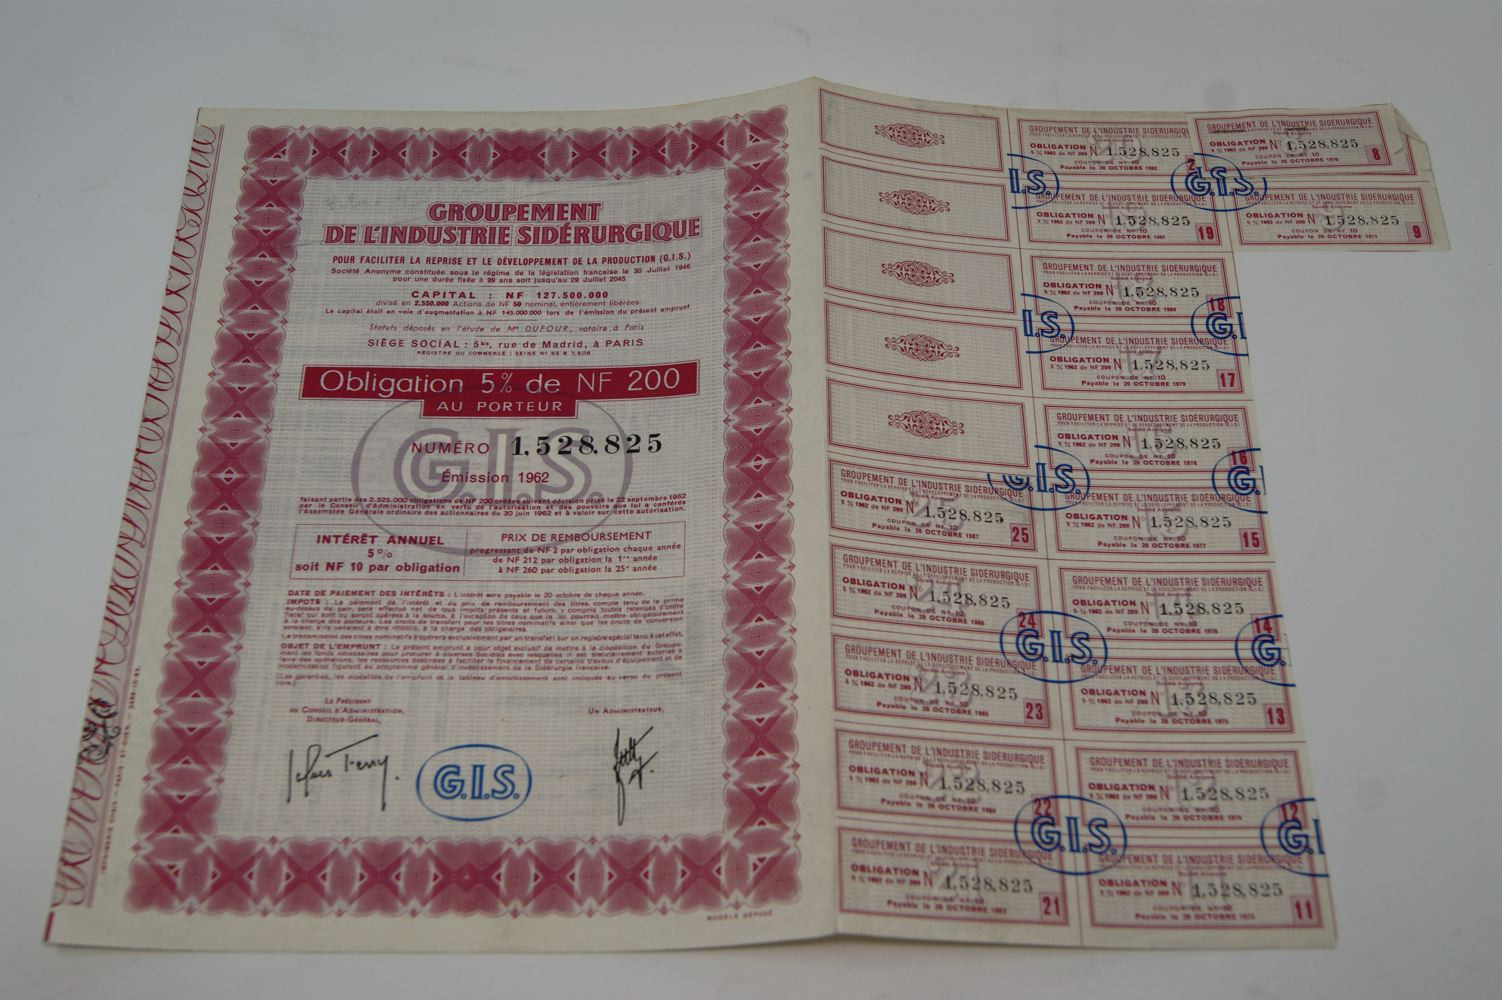 GROUPEMENT
DE L'INDUSTRIE SIDÉRURGIQUE
POUR FACILITER LA REPRISE ET LE DÉVELOPPEMENT DE LA PRODUCTION (G.I.S.)
Société Anonyme constituée sous le régime de la législation française le 30 Juillet 1946
pour une durée fixée à 99 ans soit jusqu'au 29 Juillet 2045
CAPITAL : NF 127.500.000
divisé en 2.550.000 Actions de NF 50 nominal, entièrement libérées.
Le capital était en voie d'augmentation à NF 145.000.000 lors de l'émission du présent emprunt
Statuts déposés en l'étude de Me DUFOUR, notaire à Paris
SIÈGE SOCIAL : 5bis, rue de Madrid, à PARIS
REGISTRE DU COMMERCE : SEINE N° 55 B 7.508
Obligation 5% de NF 200
AU PORTEUR
NUMÉRO 1,528,825
G.I.S.
Émission 1962
faisant partie des 2.325.000 obligations de NF 200 créées suivant décision prise le 22 septembre 1962
par le Conseil d'Administration en vertu de l'autorisation et des pouvoirs que lui a conférés
l'Assemblée Générale ordinaire des actionnaires du 30 juin 1962 et à valoir sur cette autorisation.
INTÉRÊT ANNUEL
5%
soit NF 10 par obligation
PRIX DE REMBOURSEMENT
progressant de NF 2 par obligation chaque année
de NF 212 par obligation la 1re année
à NF 260 par obligation la 25e année
DATE DE PAIEMENT DES INTÉRÊTS : L'intérêt sera payable le 20 octobre de chaque année.
IMPOTS : Le paiement de l'intérêt et du prix de remboursement des titres, compte tenu de la prime
La transmission des titres nominatifs s'opérera exclusivement par un transfert sur un registre spécial tenu à cet effet.
OBJET DE L'EMPRUNT : Le présent emprunt a pour objet exclusif de mettre à la disposition du Groupe-
ment les fonds nécessaires pour procurer à diverses Sociétés avec lesquelles il est statutairement autorisé à
faire des opérations, les ressources destinées à faciliter le financement de certains travaux d'équipement et de
modernisation figurant au programme général d'investissement de la Sidérurgie française.
(Les garanties, les modalités de l'emprunt et le tableau d'amortissement sont indiqués au verso du présent
titre.)
Le Président
du Conseil d'Administration,
Directeur-Général,
Un Administrateur,
G.I.S.
MODÈLE DÉPOSÉ
GROUPEMENT DE L'INDUSTRIE SIDÉRURGIQUE
OBLIGATION N° 1,528,825
5 % 1962 de NF 200
COUPON DE NF 10
Payable le 20 OCTOBRE 1970
8
GROUPEMENT DE L'INDUSTRIE SIDÉRURGIQUE
OBLIGATION N° 1,528,825
5 % 1962 de NF 200
COUPON DE NF 10
Payable le 20 OCTOBRE 1971
9
GROUPEMENT DE L'INDUSTRIE SIDÉRURGIQ
OBLIGATION N° 1,528,825
5 % 1962 de NF 200
COUPON DE NF 10
Payable le 20 OCTOBRE 1982
GROUPEMENT DE L'INDUSTRIE SIDÉRURGIQUE
OBLIGATION N° 1,528,825
5 % 1962 de NF 200
COUPON DE NF 10
Payable le 20 OCTOBRE 1981
19
GROUPEMENT DE L'INDUSTRIE SIDÉRURGIQUE
OBLIGATION N° 1,528,825
5 % 1962 de NF 200
COUPON DE NF 10
Payable le 20 OCTOBRE 1980
18
GROUPEMENT DE L'INDUSTRIE SIDÉRURGIQUE
OBLIGATION N° 1,528,825
5 % 1962 de NF 200
COUPON DE NF 10
Payable le 20 OCTOBRE 1979
17
GROUPEMENT DE L'INDUSTRIE SIDÉRURGIQUE
OBLIGATION N° 1,528,825
5 % 1962 de NF 200
COUPON DE NF 10
Payable le 20 OCTOBRE 1978
16
GROUPEMENT DE L'INDUSTRIE SIDÉRURGIQUE
OBLIGATION N° 1,528,825
5 % 1962 de NF 200
COUPON DE NF 10
Payable le 20 OCTOBRE 1987
25
GROUPEMENT DE L'INDUSTRIE SIDÉRURGIQUE
OBLIGATION N° 1,528,825
5 % 1962 de NF 200
COUPON DE NF 10
Payable le 20 OCTOBRE 1977
15
GROUPEMENT DE L'INDUSTRIE SIDÉRURGIQUE
OBLIGATION N° 1,528,825
5 % 1962 de NF 200
COUPON DE NF 10
Payable le 20 OCTOBRE 1986
24
GROUPEMENT DE L'INDUSTRIE SIDÉRURGIQUE
OBLIGATION N° 1,528,825
5 % 1962 de NF 200
COUPON DE NF 10
Payable le 20 OCTOBRE 1976
14
GROUPEMENT DE L'INDUSTRIE SIDÉRURGIQUE
OBLIGATION N° 1,528,825
5 % 1962 de NF 200
COUPON DE NF 10
Payable le 20 OCTOBRE 1985
23
GROUPEMENT DE L'INDUSTRIE SIDÉRURGIQUE
OBLIGATION N° 1,528,825
5 % 1962 de NF 200
COUPON DE NF 10
Payable le 20 OCTOBRE 1975
13
GROUPEMENT DE L'INDUSTRIE SIDÉRURGIQUE
OBLIGATION N° 1,528,825
5 % 1962 de NF 200
COUPON DE NF 10
Payable le 20 OCTOBRE 1984
22
GROUPEMENT DE L'INDUSTRIE SIDÉRURGIQUE
OBLIGATION N° 1,528,825
5 % 1962 de NF 200
COUPON DE NF 10
Payable le 20 OCTOBRE 1974
12
GROUPEMENT DE L'INDUSTRIE SIDÉRURGIQUE
OBLIGATION N° 1,528,825
5 % 1962 de NF 200
COUPON DE NF 10
Payable le 20 OCTOBRE 1983
21
GROUPEMENT DE L'INDUSTRIE SIDÉRURGIQUE
OBLIGATION N° 1,528,825
5 % 1962 de NF 200
COUPON DE NF 10
Payable le 20 OCTOBRE 1973
11
G.I.S.
G.I.S.
G.I.S.